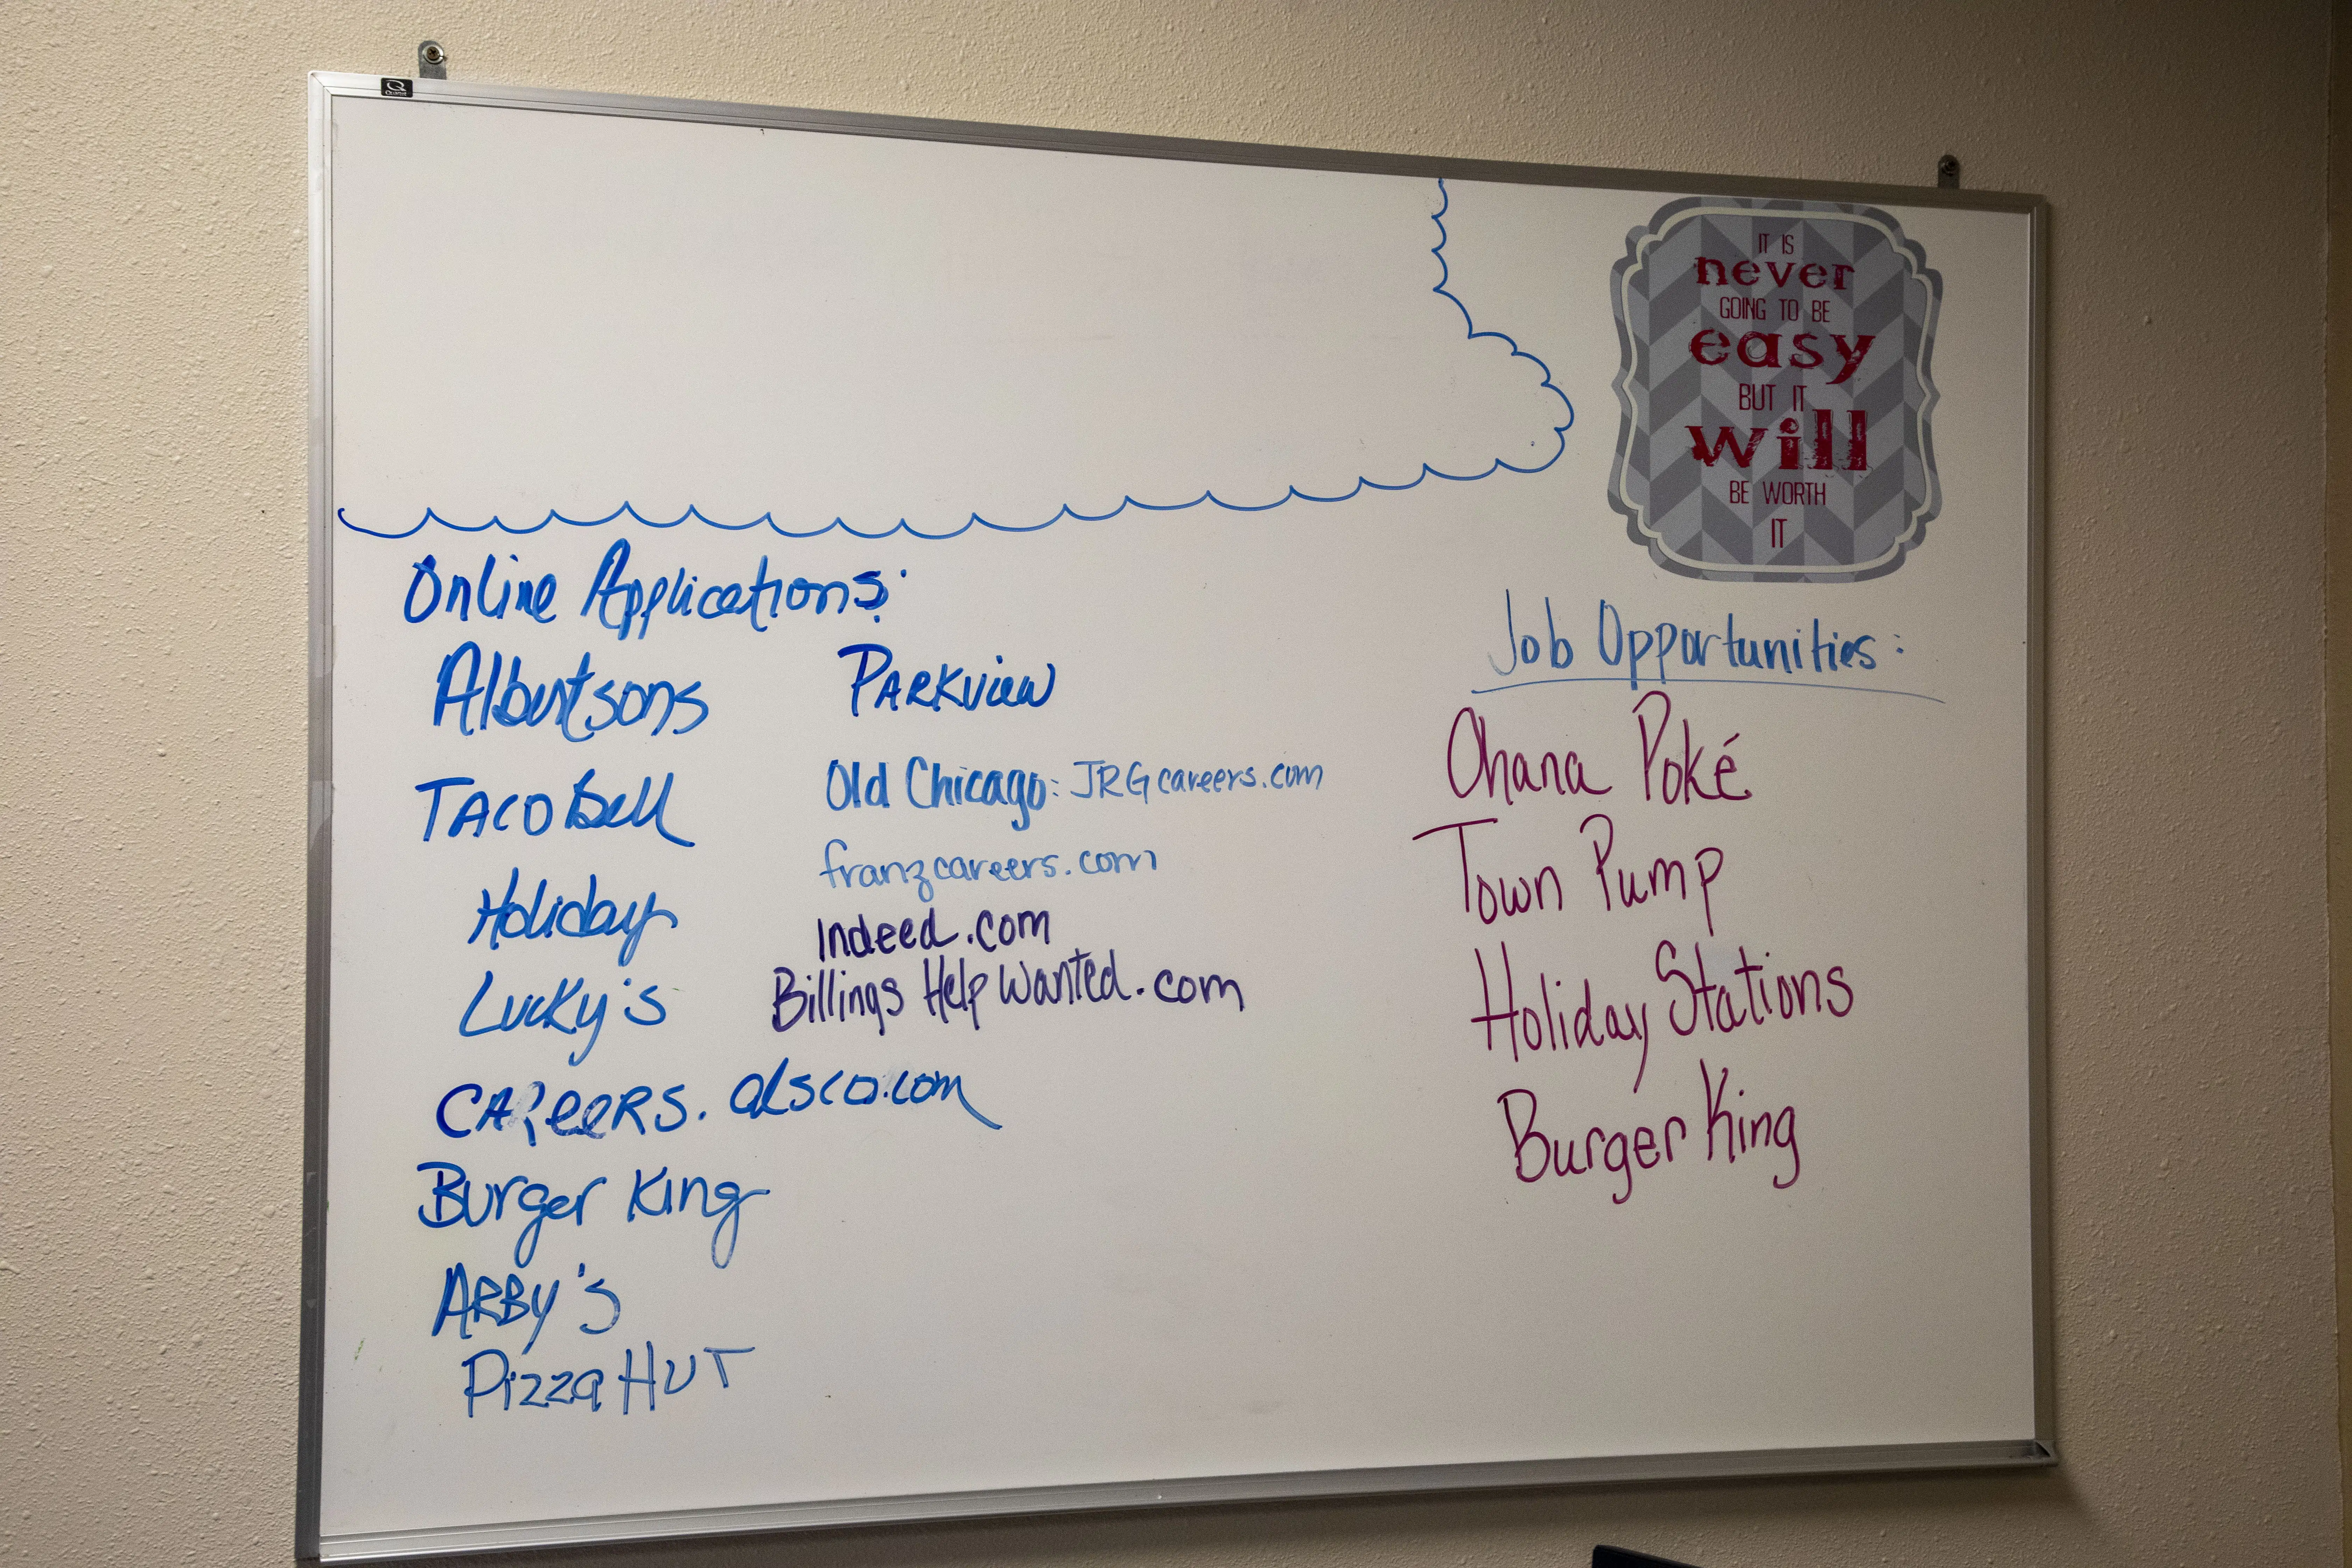 IT IS
never
GOING TO BE
easy
BUT IT
will
BE WORTH
IT
Online Applications:
Albertsons
Taco Bell
Holiday
Lucky's
CAReeRS.alsco.com
Burger King
ARBy's
Pizza HUT
PARKview
Old Chicago: JRGcareers.com
franzcareers.com
Indeed.com
Billings Help Wanted.com
Job Opportunities:
Ohana Poké
Town Pump
Holiday Stations
Burger King